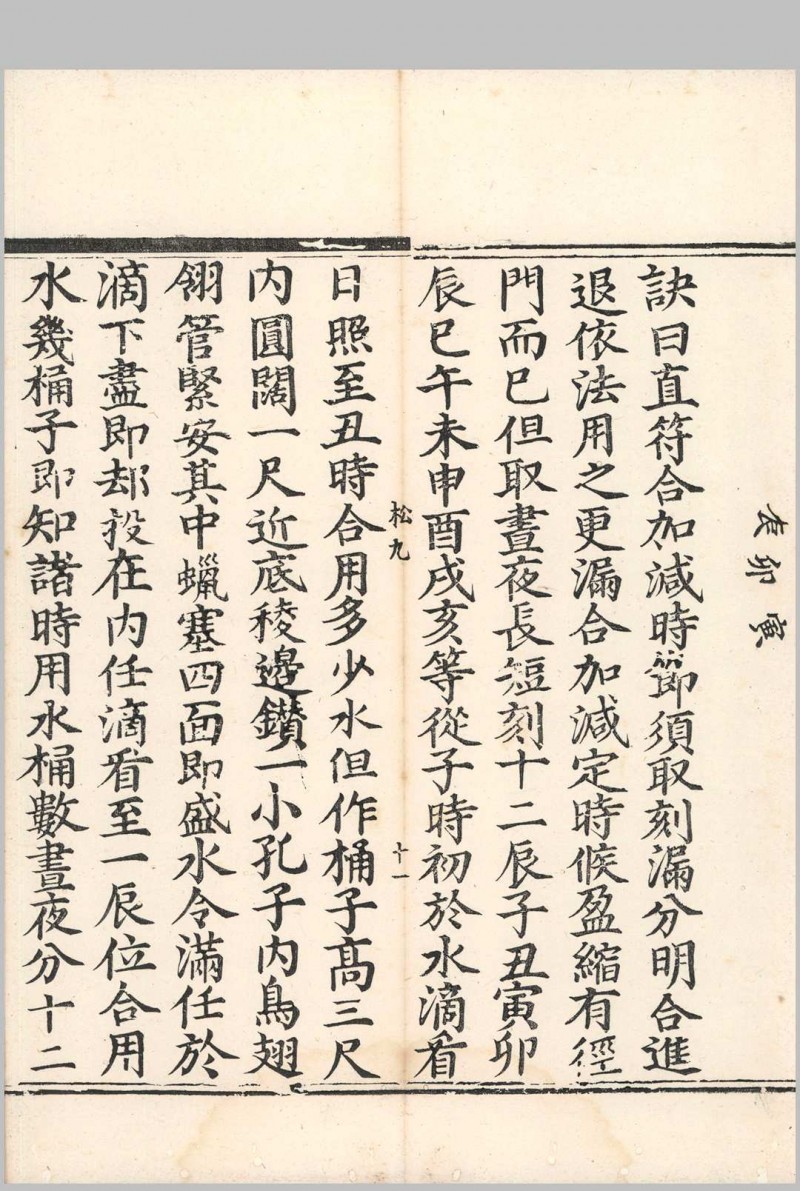 辰卯寅
訣曰直符合加減時節須取刻漏分明合進
退依法用之更漏合加減定時候盈縮有徑
門而已但取晝夜長短刻十二辰子丑寅卯
辰巳午未申酉戌亥等從子時初於水滴看
松九
十一
日照至丑時合用多少水但作桶子高三尺
内圓闊一尺近底稜邊鑚一小孔子内鳥翅
翎管緊安其中蠟塞四面即盛水令滿任於
滴下盡即却投在内任滴看至一辰位合用
水幾桶子即知諸時用水桶數晝夜分十二